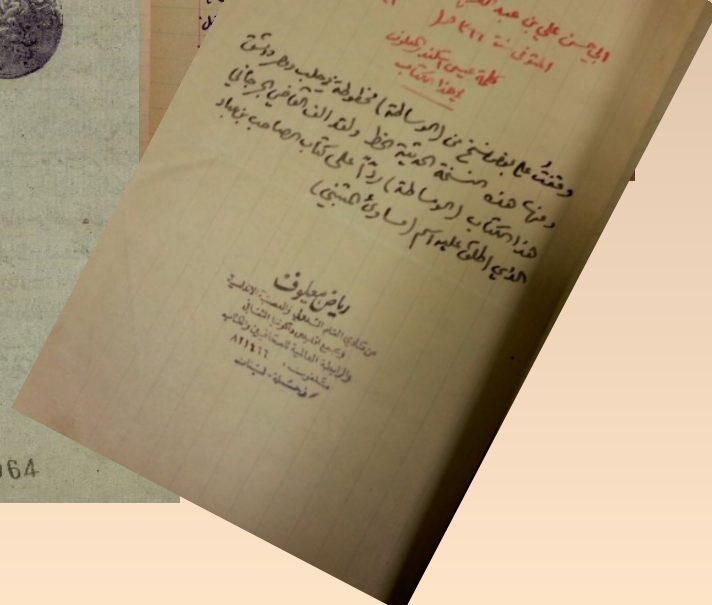 ابي الحسن علي بن عبد
المتوفى سنة ٣٦٦ هـ
كلمة عيسى اسكندر المعلوف
بهذا الكتاب
وقفتُ على بعض نسخ من (الوساطة) مخطوطة في حلب ومصر ودمشق
ومنها هذه النسخة الحديثة الخط ولقد الف القاضي الجرجاني
هذا الكتاب (الوساطة) رداً على كتاب الصاحب بن عباد
الذي اطلق عليه اسم (مساوئ المتنبي)
رياض معلوف
من منتدى القلم الدولي والعصبة الاندلسية
ومجمع
والرابطة العالمية للصحافيين والكتاب
تلفون: ٨٢١٤٦٦
زحلة - لبنان
64